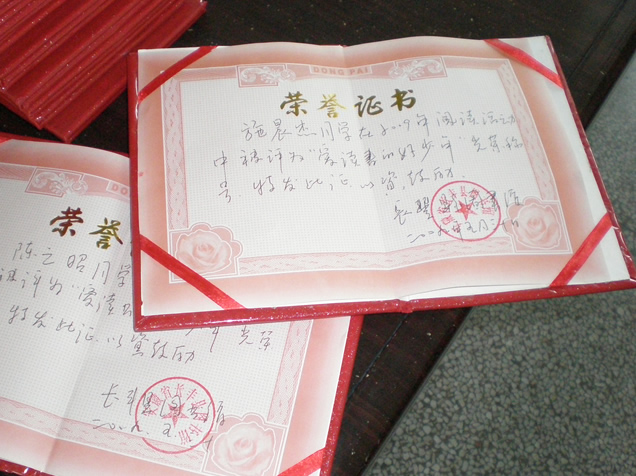 DONG PAI
荣誉证书
施晨杰同学在2009年阅读活动
中被评为“爱读书的好少年”光荣称
号。特发此证，以资鼓励。
长丰县新华书店
二〇〇九年九月
荣誉
陈之昭同学
被评为“爱读
年”光荣
特发此证，以资鼓励
长丰县新华书店
二〇〇九.九.